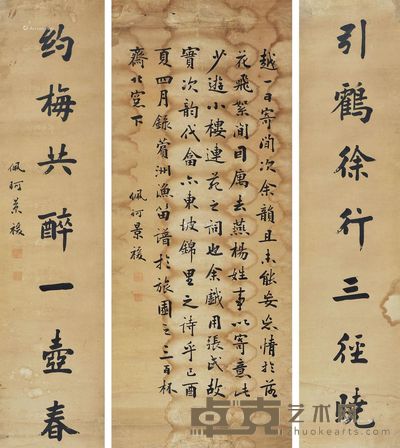 引鶴徐行三徑曉
越一日寄閒次余韻且未能安忘情於落
花飛絮間因寓去燕楊姓事以寄意此
少游小樓連苑之詞也余戲用張氏故
實次韵代畣亦東坡錦里之詩乎己酉
夏四月錄蘋洲漁笛譜於旅園之三百杯
齋北窓下
佩珂景祓
約梅共醉一壺春
佩珂景祓
卓克艺术网